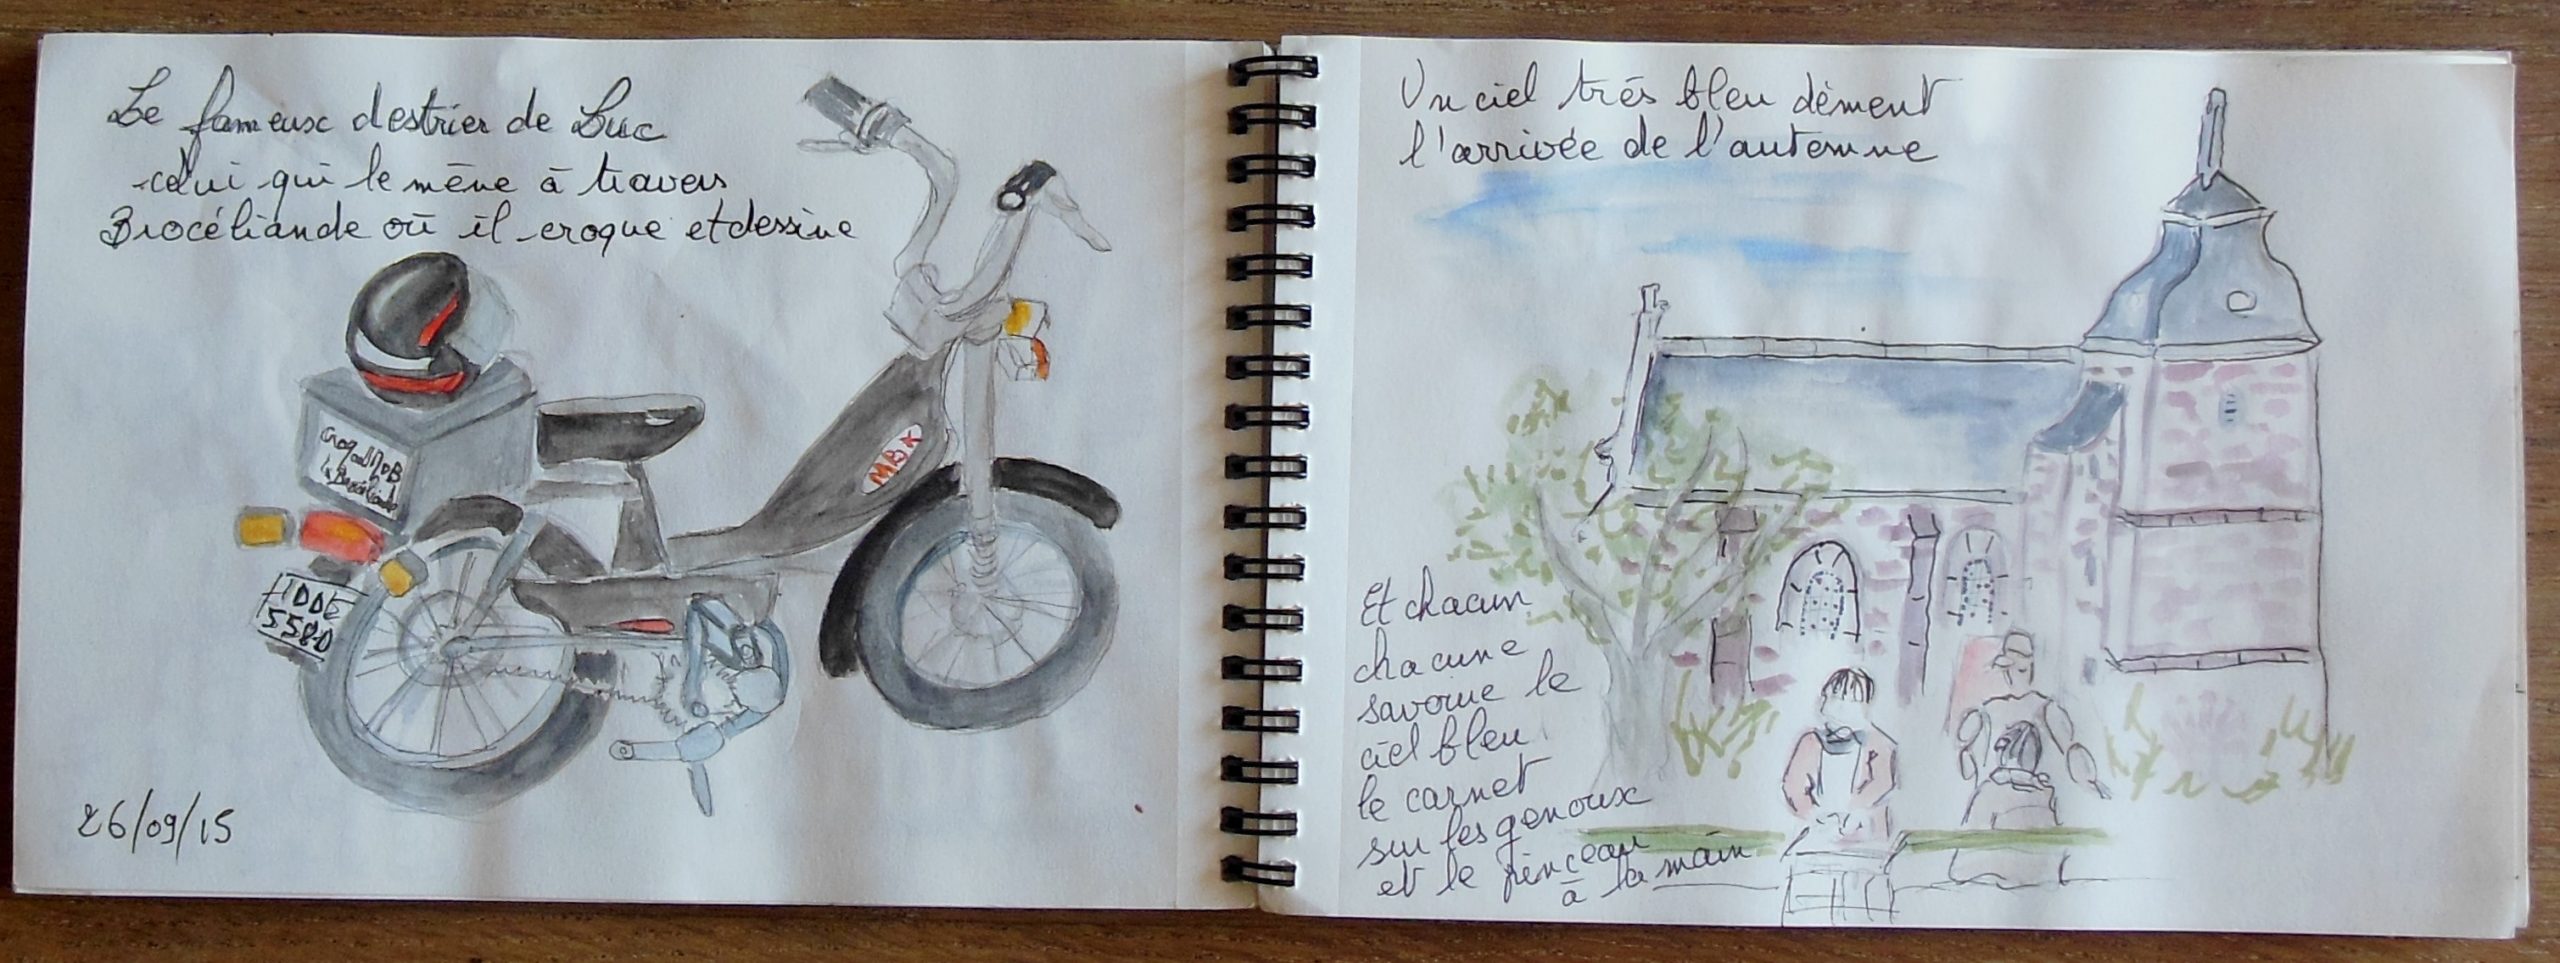 Le fameux destrier de Luc
celui qui le mène à travers
Brocéliande où il croque et dessine
MBK
26/09/15
Un ciel très bleu dément
l'arrivée de l'automne
Et chacun
chacune
savoure le
ciel bleu
le carnet
sur les genoux
et le pinceau
à la main